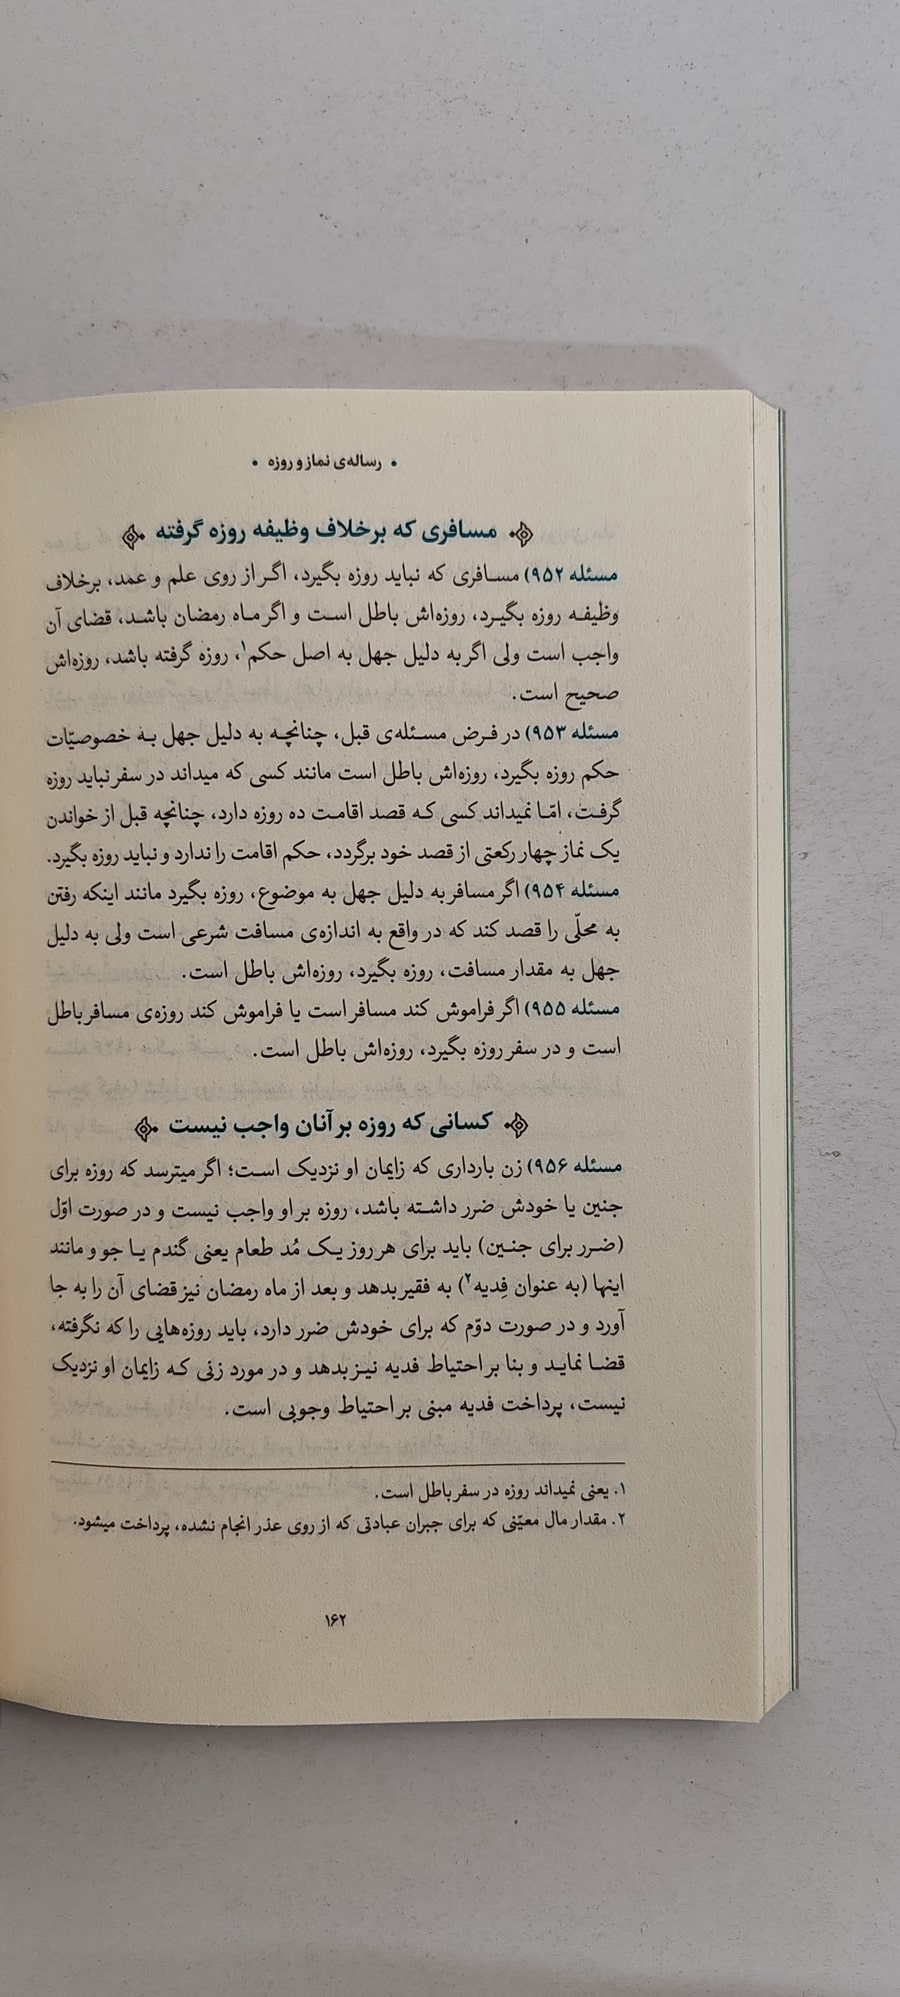 • رساله‌ی نماز و روزه •
مسافری که برخلاف وظیفه روزه گرفته
مسئله ۹۵۲) مسافری که نباید روزه بگیرد، اگر از روی علم و عمد، برخلاف
وظیفه روزه بگیرد، روزه‌اش باطل است و اگر ماه رمضان باشد، قضای آن
واجب است ولی اگر به دلیل جهل به اصل حکم۱، روزه گرفته باشد، روزه‌اش
صحیح است.
مسئله ۹۵۳) در فرض مسئله‌ی قبل، چنانچه به دلیل جهل به خصوصیّات
حکم روزه بگیرد، روزه‌اش باطل است مانند کسی که میداند در سفر نباید روزه
گرفت، امّا نمیداند کسی که قصد اقامت ده روزه دارد، چنانچه قبل از خواندن
یک نماز چهار رکعتی از قصد خود برگردد، حکم اقامت را ندارد و نباید روزه بگیرد.
مسئله ۹۵۴) اگر مسافر به دلیل جهل به موضوع، روزه بگیرد مانند اینکه رفتن
به محلّی را قصد کند که در واقع به اندازه‌ی مسافت شرعی است ولی به دلیل
جهل به مقدار مسافت، روزه بگیرد، روزه‌اش باطل است.
مسئله ۹۵۵) اگر فراموش کند مسافر است یا فراموش کند روزه‌ی مسافر باطل
است و در سفر روزه بگیرد، روزه‌اش باطل است.
کسانی که روزه بر آنان واجب نیست
مسئله ۹۵۶) زن بارداری که زایمان او نزدیک است؛ اگر میترسد که روزه برای
جنین یا خودش ضرر داشته باشد، روزه بر او واجب نیست و در صورت اوّل
(ضرر برای جنین) باید برای هر روز یک مُد طعام یعنی گندم یا جو و مانند
اینها (به عنوان فِدیه۲) به فقیر بدهد و بعد از ماه رمضان نیز قضای آن را به جا
آورد و در صورت دوّم که برای خودش ضرر دارد، باید روزه‌هایی را که نگرفته،
قضا نماید و بنا بر احتیاط فدیه نیز بدهد و در مورد زنی که زایمان او نزدیک
نیست، پرداخت فدیه مبنی بر احتیاط وجوبی است.
۱. یعنی نمیداند روزه در سفر باطل است.
۲. مقدار مال معیّنی که برای جبران عبادتی که از روی عذر انجام نشده، پرداخت میشود.
۱۶۲